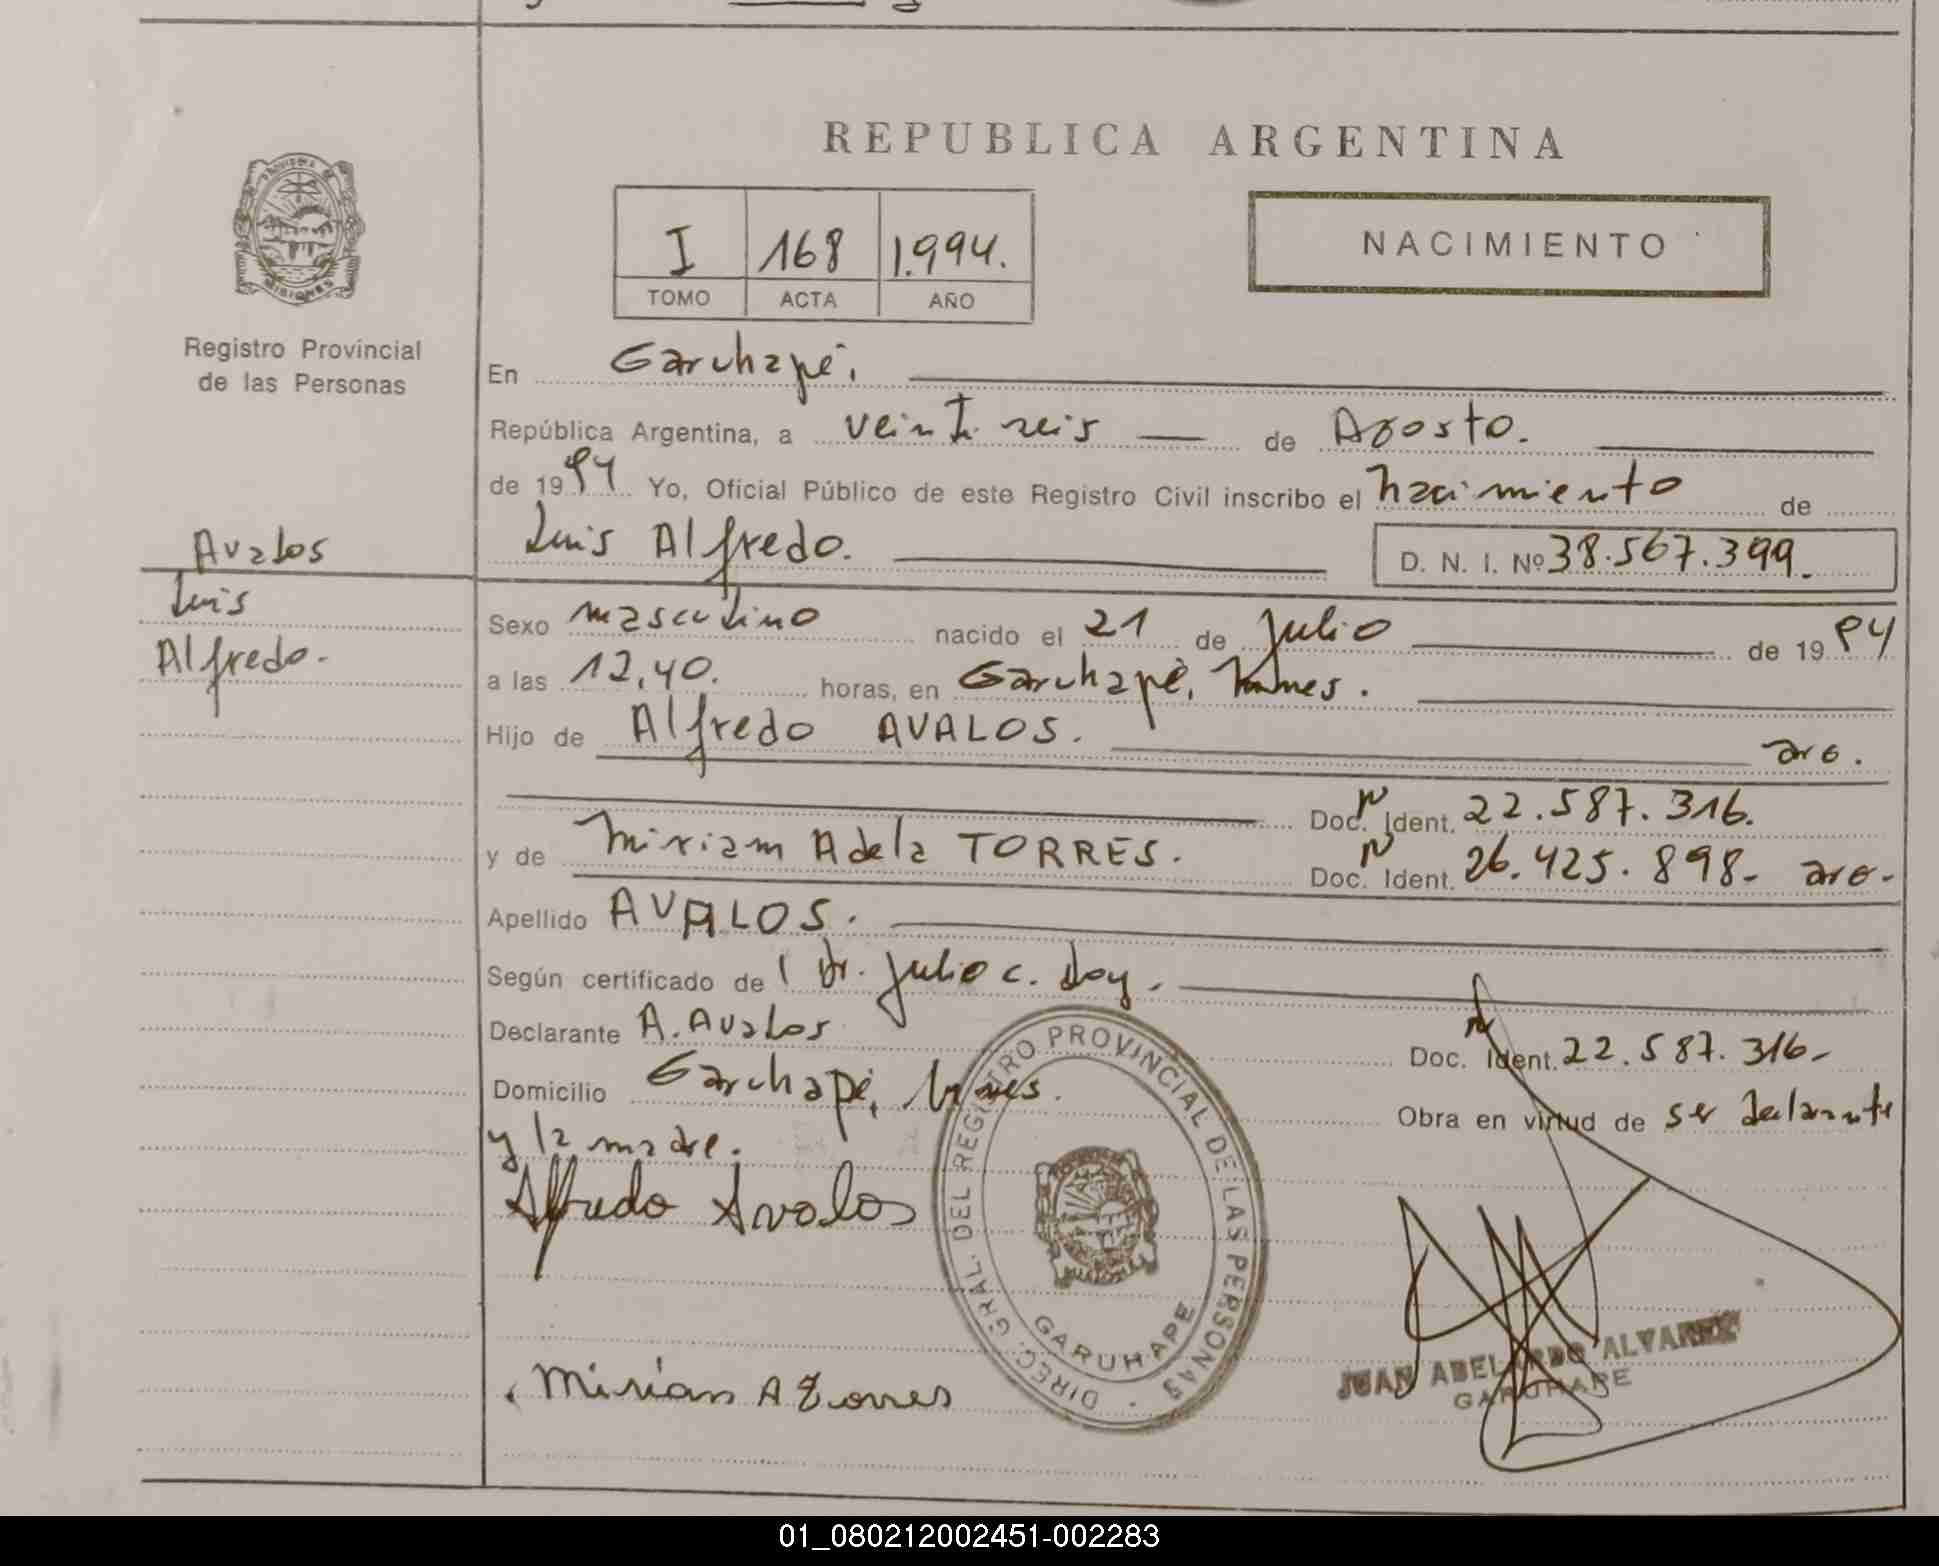 REPUBLICA ARGENTINA
PROVINCIA DE
MISIONES
Registro Provincial
de las Personas
I 168 1.994.
TOMO ACTA AÑO
NACIMIENTO
En Garuhapé,
República Argentina, a veintiseis de Agosto.
de 1994 Yo, Oficial Público de este Registro Civil inscribo el nacimiento de
Luis Alfredo.
D. N. I. Nº 38.567.399.
Avalos
Luis
Alfredo.
Sexo masculino nacido el 21 de Julio de 1994
a las 12,40. horas, en Garuhapé, Mnes.
Hijo de Alfredo AVALOS. arg.
Doc. Ident. 22.587.316.
y de Miriam Adela TORRES.
Doc. Ident. 26.425.898- arg.
Apellido AVALOS.
Según certificado de Dr. Julio C. Doy.
Declarante A. Avalos
Doc. Ident. 22.587.316-
Domicilio Garuhapé, Mnes.
Obra en virtud de ser declarante
y la madre.
Alfredo Avalos
DIREC. GRAL. DEL REGISTRO PROVINCIAL DE LAS PERSONAS
GARUHAPE
JUAN ABELARDO ALVAREZ
GARUHAPE
Mirian A Torres
01_080212002451-002283